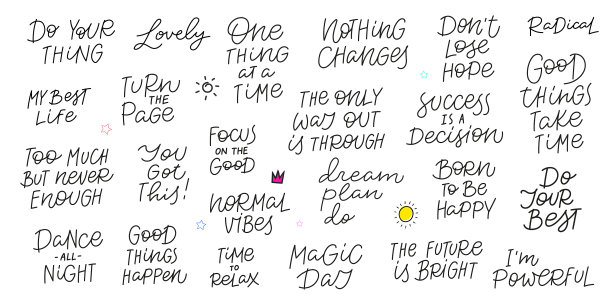 Do YOUR
THING
Lovely
One
THING
AT a
TIME
NOTHING
CHANGES
DON'T
LOSE
HOPE
RADICAL
MY BEST
LIFE
TURN
THE
PAGE
THE ONLY
WAY OUT
IS THROUGH
SUCCESS
IS A
DECISION
GOOD
THINGS
TAKE
TIME
TOO MUCH
BUT NEVER
ENOUGH
YOU
GOT
THIS!
FOCUS
ON THE
GOOD
NORMAL
VIBES
dream
plan
do
BORN
TO BE
HAPPY
DO
YOUR
BEST
DANCE
-ALL-
NIGHT
GOOD
THINGS
HAPPEN
TIME
TO
RELAX
MAGIC
DAY
THE FUTURE
IS BRIGHT
I'm
POWERFUL